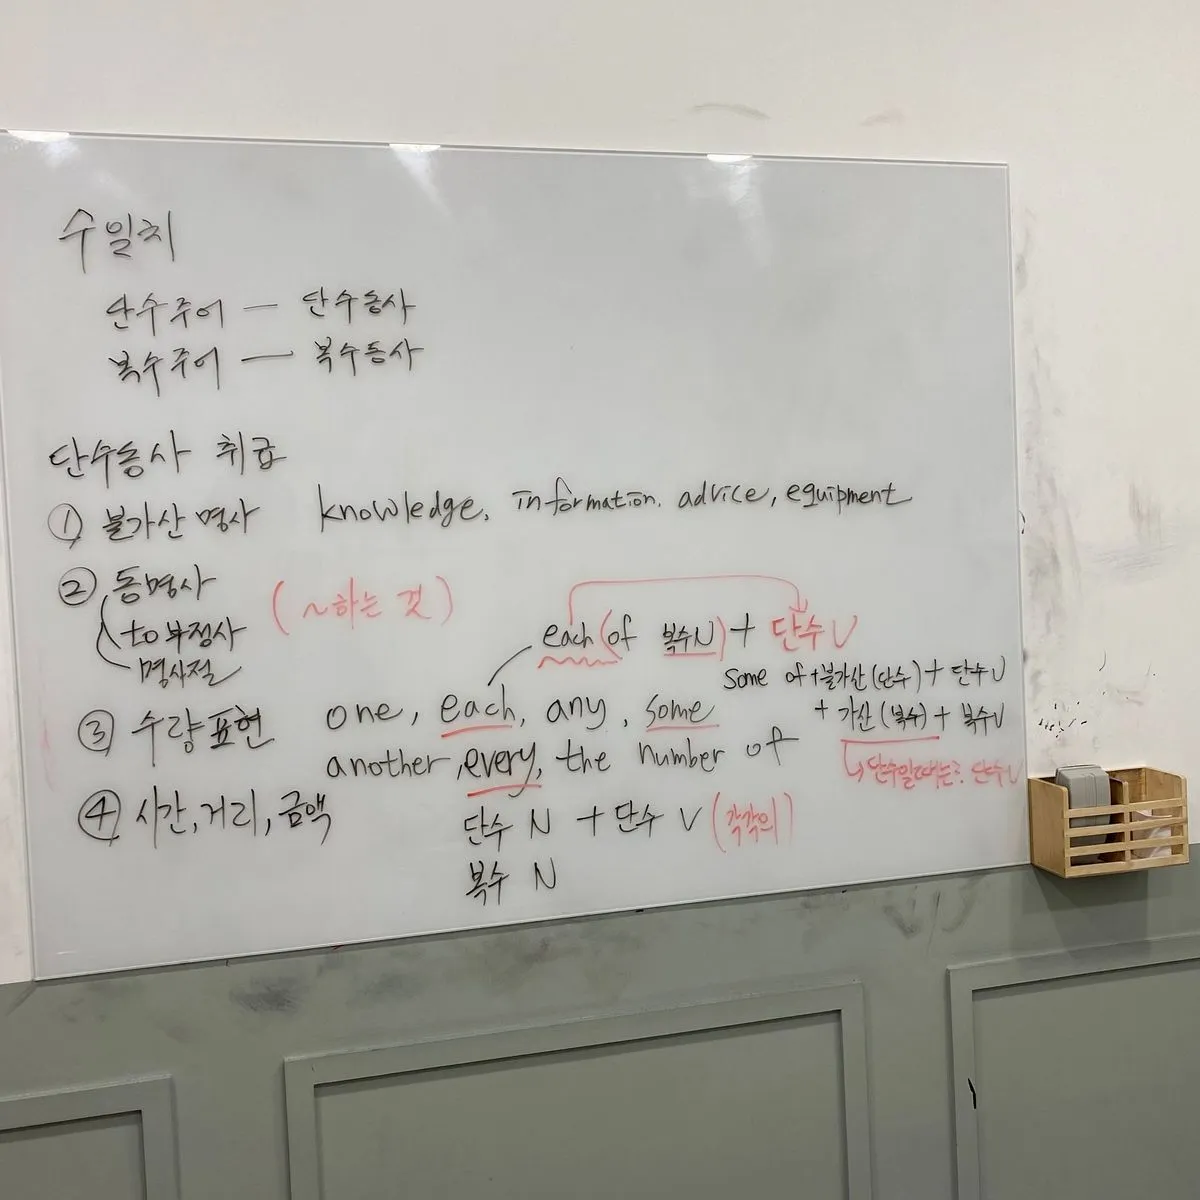 수일치
단수주어 — 단수동사
복수주어 — 복수동사
단수동사 취급
① 불가산 명사 knowledge, information, advice, equipment
② 동명사 (~하는 것)
to부정사
명사절
each (of 복수N) + 단수V
some of + 불가산(단수) + 단수V
+ 가산(복수) + 복수V
↳ 단수일때는? 단수V
③ 수량표현 one, each, any, some
another, every, the number of
④ 시간, 거리, 금액
단수 N + 단수 V (각각의)
복수 N